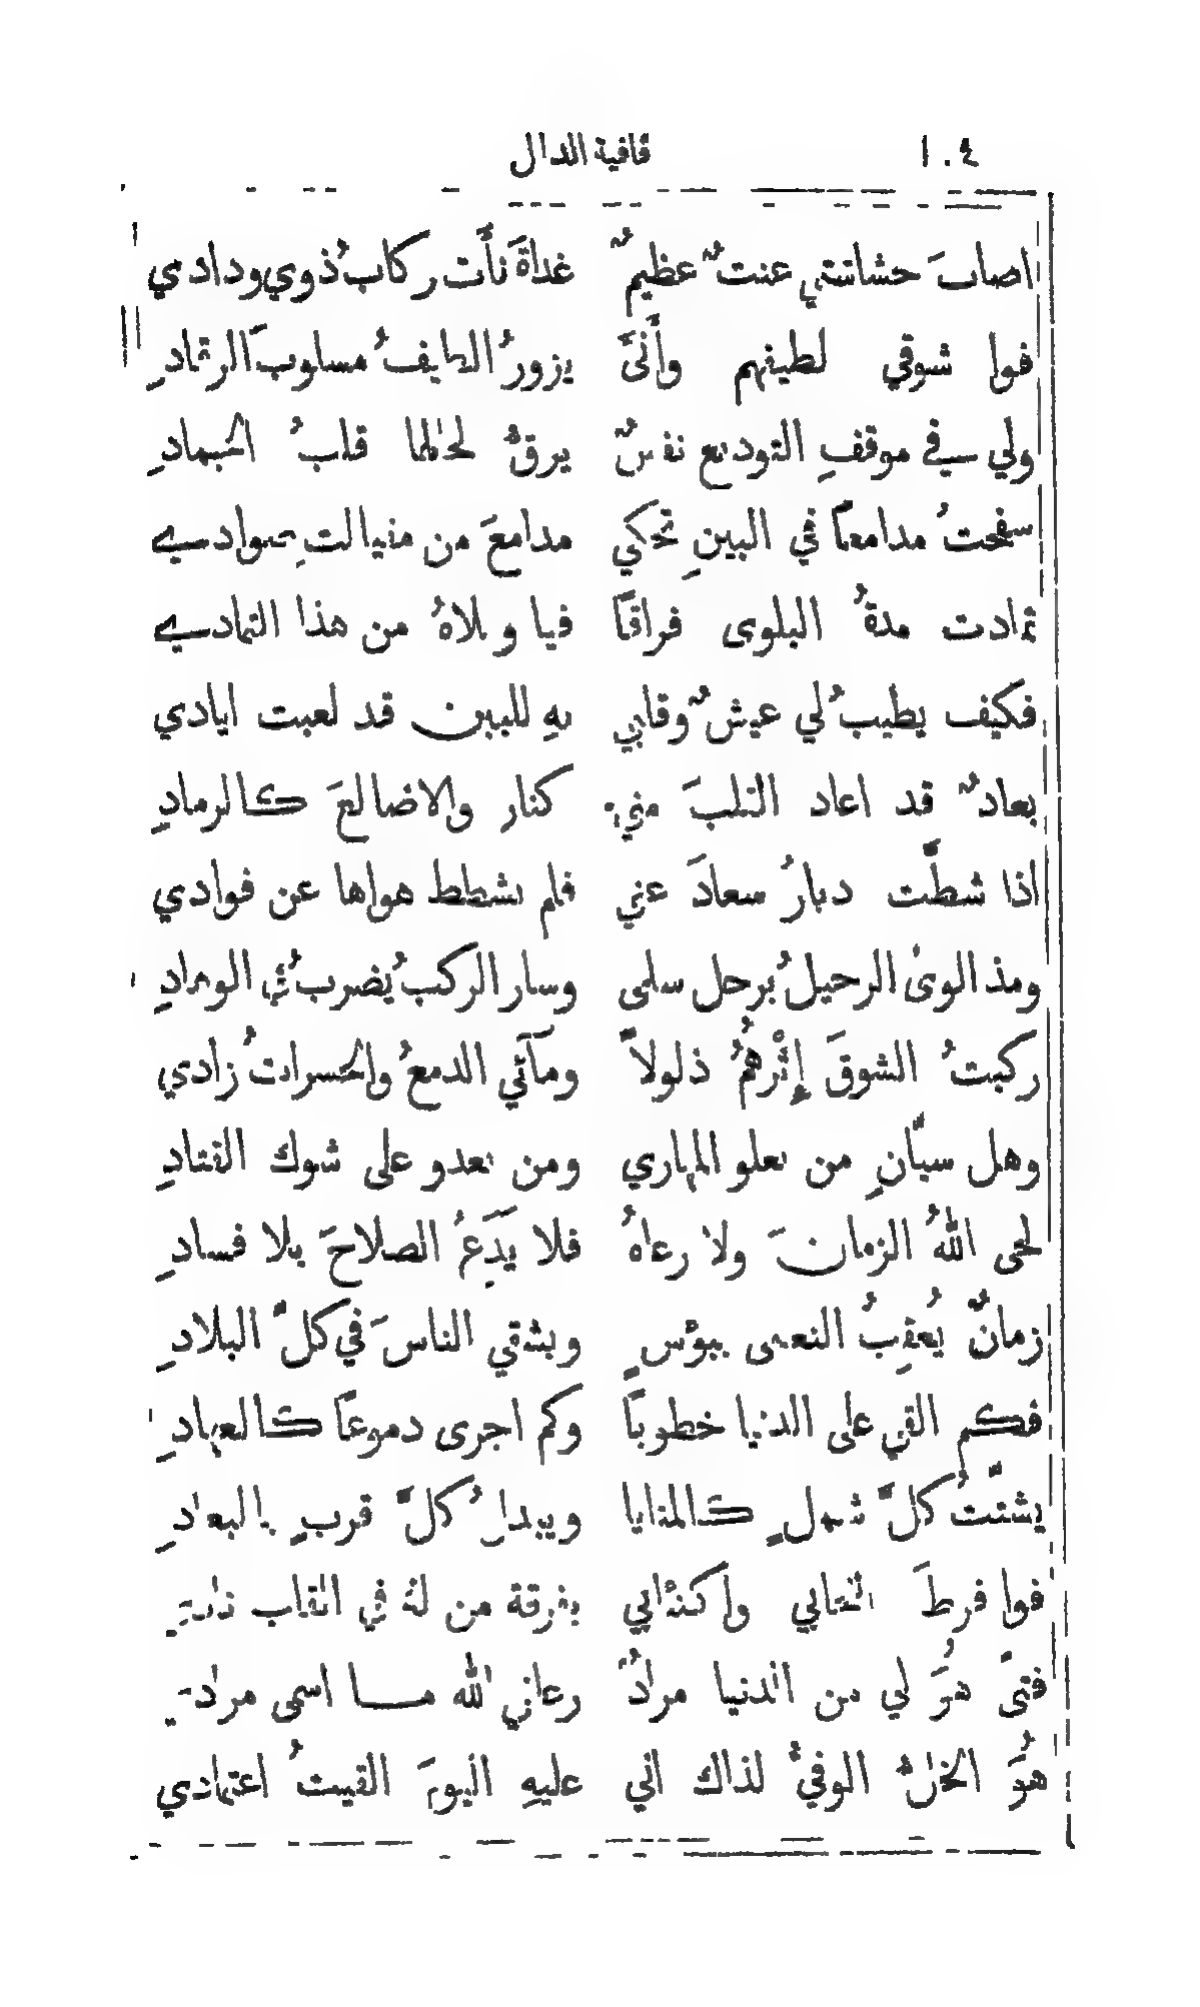 ١٠٤ قافية الدال
اصابَ حشاشتي عنتٌ عظيمٌ غداةَ نأَت ركابُ ذوي ودادي
فوا شوقي لطيفهم وأَنَّى يزورُ الطيفُ مسلوبَ الرقادِ
ولي في موقفِ التوديع نفسٌ يرقُّ لحالها قلبُ الجمادِ
سفحتُ مدامعاً في البينِ تحكي مدامعَ من منيا لتِ
تمادت مدةُ البلوى فراقاً فيا ويلاهُ من هذا التمادي
فكيف يطيبُ لي عيشٌ وقلبي بهِ للبين قد لعبت ايادي
بعادٌ قد اعاد القلبَ مني كنارٍ والاضالعَ كالرمادِ
اذا شطَّت ديارُ سعادَ عني فلم يشطط هواها عن فوادي
ومذ الوى الرحيلُ برحل سلمى وسار الركبُ يضربُ في الوهادِ
ركبتُ الشوقَ إِثْرهُمُ ذلولاً ومآئي الدمعُ والحسراتُ زادي
وهل سيّانِ من يعلو المهاري ومن يعدو على شوك القتادِ
لحى اللهُ الزمانَ ولا رعاهُ فلا يَدَعُ الصلاحَ بلا فسادِ
زمانٌ يُعقِبُ النعمى ببؤسٍ ويشقي الناسَ في كلِّ البلادِ
فكم القى على الدنيا خطوباً وكم اجرى دموعاً كالعهادِ
يشتّتُ كلَّ شملٍ كالمنايا ويبدلُ كلَّ قربٍ بالبعادِ
فوا فرطَ اكتئابي بفرقة من لهُ في القلب
فتىً هوَ لي من الدنيا مرادٌ رعاني الله ما اسمى مرادي
هُوَ الخلُّ الوفيُّ لذاك اني عليهِ اليومَ القيتُ اعتمادي